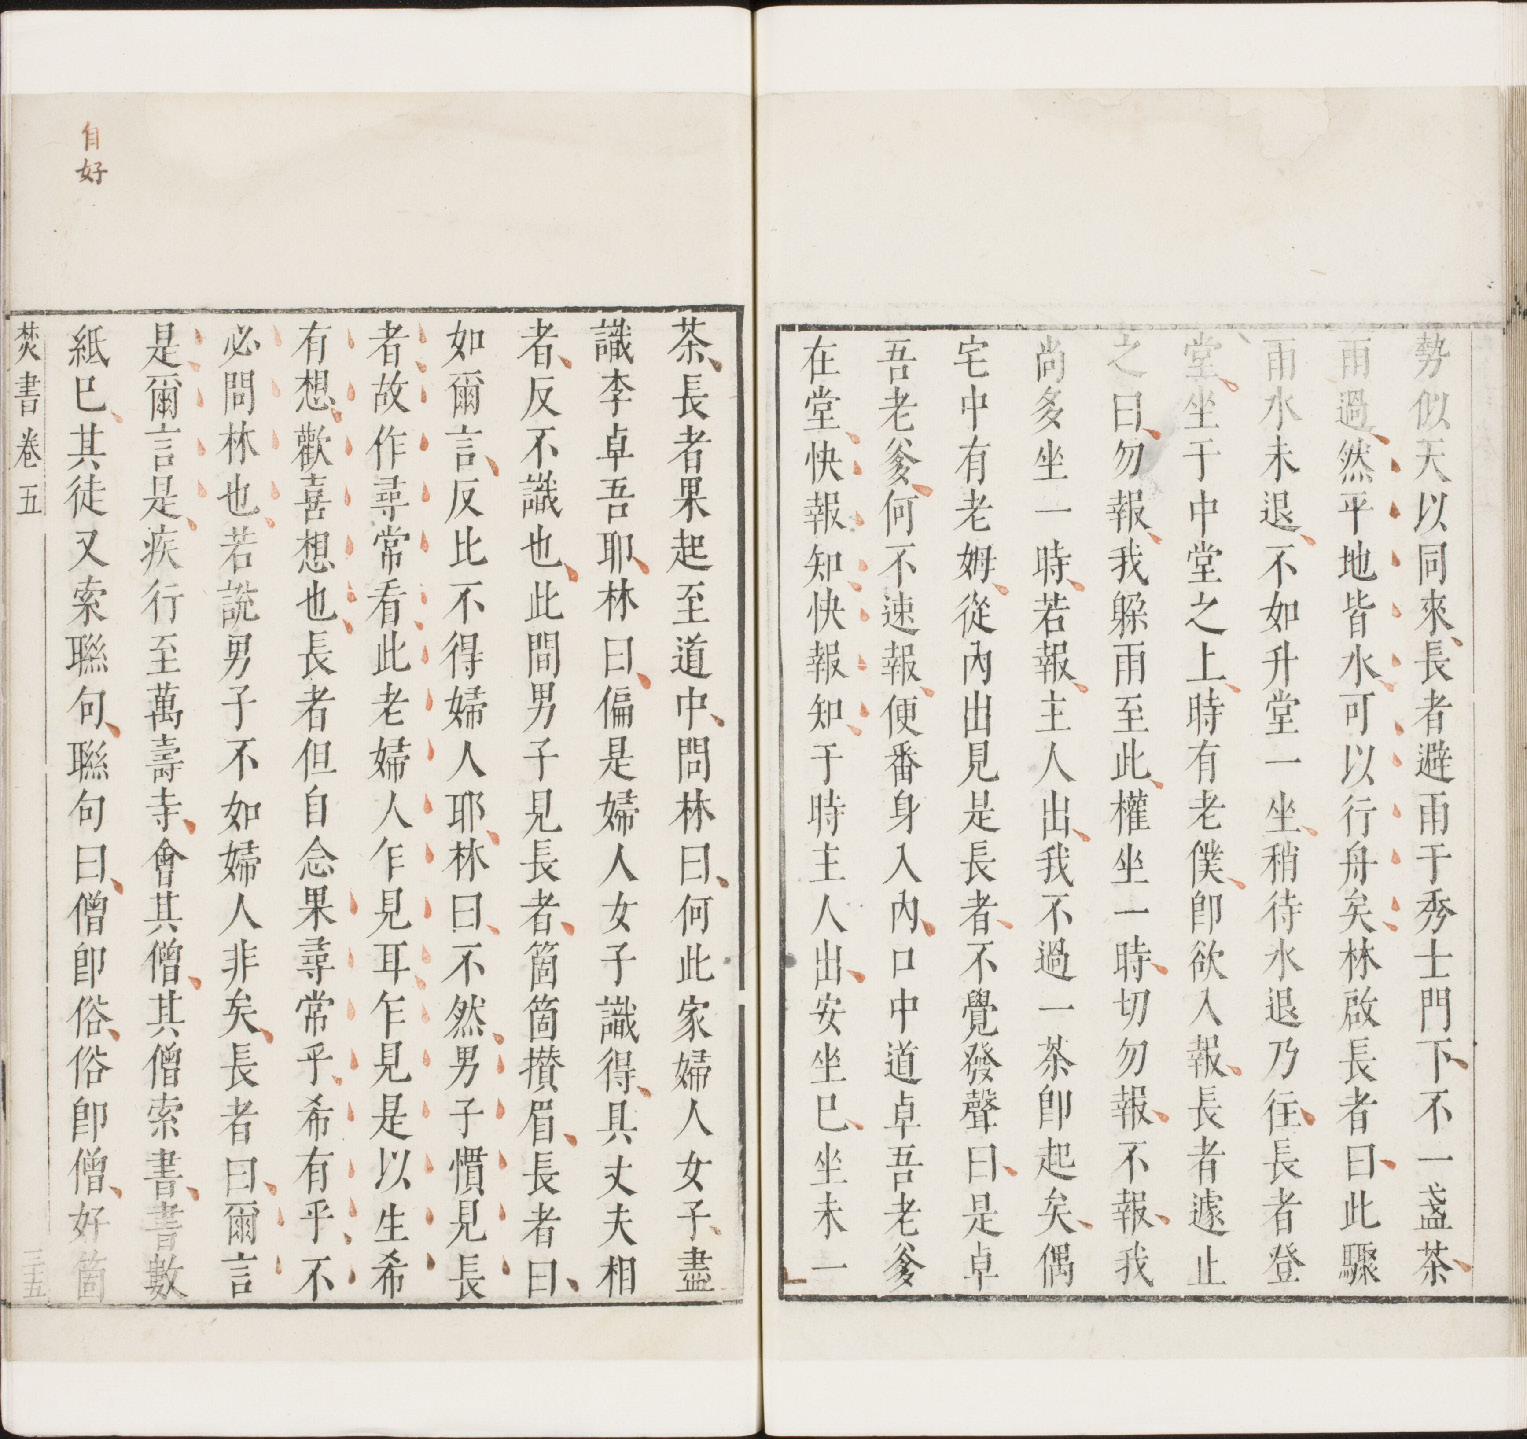 勢似天以同來長者避雨于秀士門下不一盞茶
雨過然平地皆水可以行舟矣林啟長者曰此驟
雨水未退不如升堂一坐稍待水退乃往長者登
堂坐于中堂之上時有老僕卽欲入報長者遽止
之曰勿報我躲雨至此權坐一時切勿報不報我
尚多坐一時若報主人出我不過一茶卽起矣偶
宅中有老姆從內出見是長者不覺發聲曰是卓
吾老爹何不速報便番身入內口中道卓吾老爹
在堂快報知快報知于時主人出安坐已坐未一
茶長者果起至道中問林曰何此家婦人女子盡
識李卓吾耶林曰偏是婦人女子識得具丈夫相
者反不識也此間男子見長者箇箇攢眉長者曰
如爾言反比不得婦人耶林曰不然男子慣見長
者故作尋常看此老婦人乍見耳乍見是以生希
有想歡喜想也長者但自念果尋常乎希有乎不
必問林也若說男子不如婦人非矣長者曰爾言
是爾言是疾行至萬壽寺會其僧其僧索書書數
紙已其徒又索聯句聯句曰僧卽俗俗卽僧好箇
焚書卷五
三十五
自好